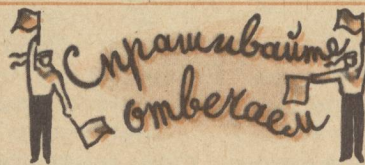 Спрашивайте
отвечаем